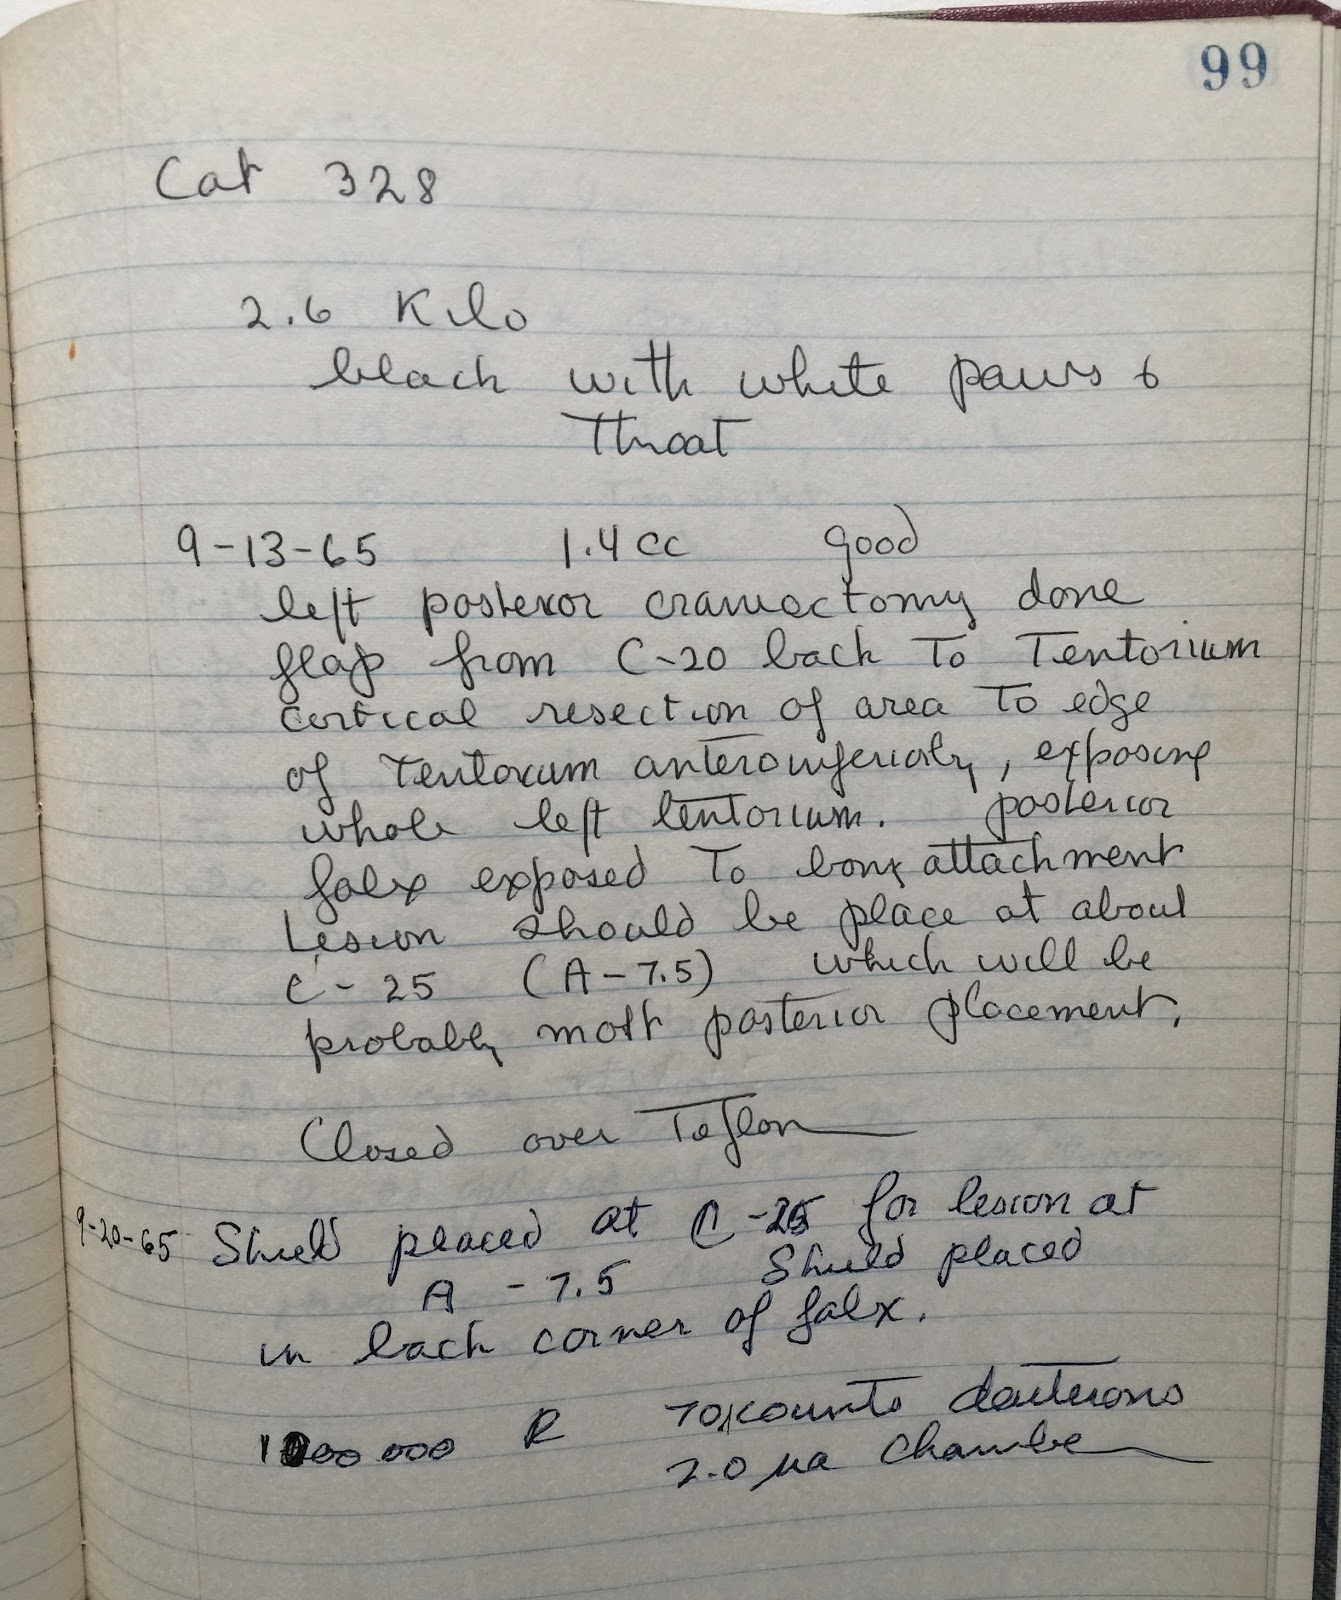 99
Cat 328
2.6 Kilo
black with white paws &
Throat
9-13-65 1.4 cc good
left posterior craniectomy done
flap from C-20 back To Tentorium
cortical resection of area To edge
of Tentorium anteroinferiorly, exposing
whole left tentorium. posterior
falx exposed To bony attachment
Lesion should be place at about
C - 25 (A - 7.5) which will be
probably most posterior placement.
Closed over Teflon
9-20-65 Shield placed at C -25 for lesion at
A - 7.5 Shield placed
in back corner of falx.
000 R counts deuterons
2.0 µa Chamber